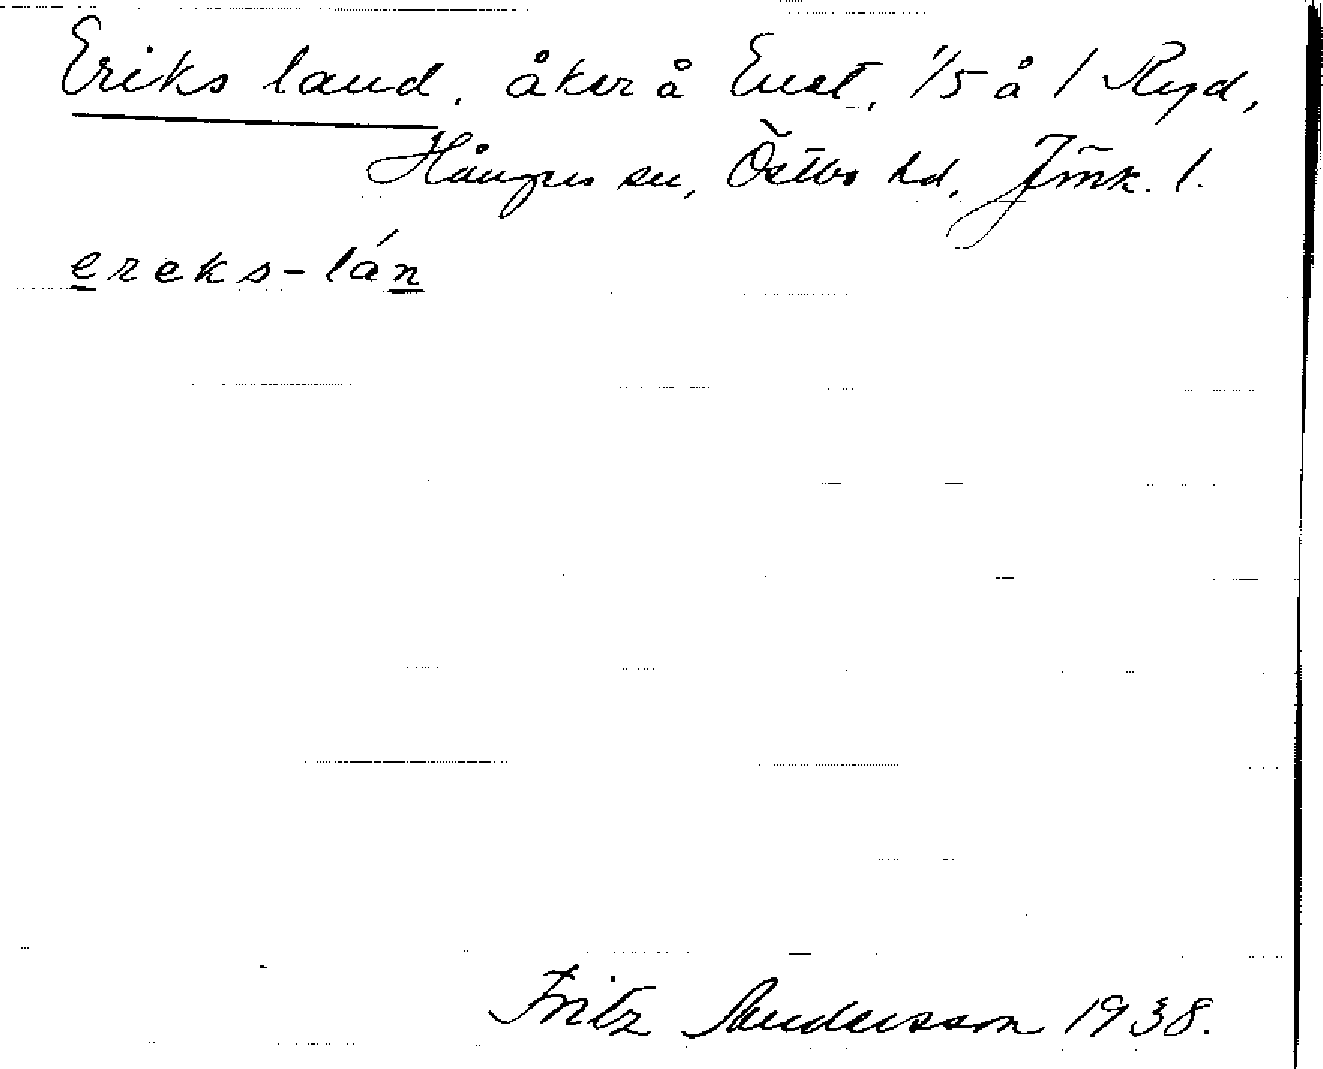 Eriks land, åker å Enst, 1/5 å 1 Ryd,
Hånger sn, Östbo hd, Jmk. l.
ereks-lán
Fritz Andersson 1938.